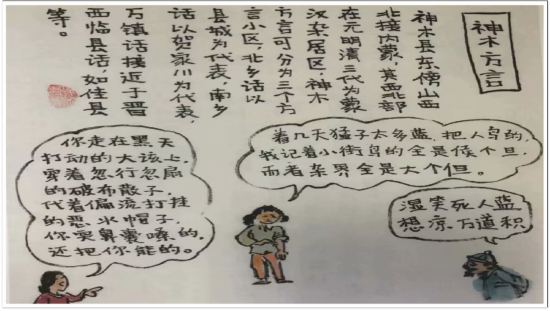 神木方言
神木县东傍山西
北接内蒙,其西北部
在元明清三代为蒙
汉杂居区,神木
方言可分为三个方
言小区,北乡话以
县城为代表,南乡
话以贺家川为代表,
万镇话接近于晋
西临县话,如佳县
等。
着几天猛子太多蓝,把人鸟的,
我记着小街鸟的全是候个旦,
而着杂界全是大个但。
你走在黑天
打动的大该上,
穿着忽行忽扇
的破布散子,
代着偏流打挂
的恶水帽子,
你哭鼻囊嗓的,
还把你能的。
湿笑死人蓝
想凉万道积